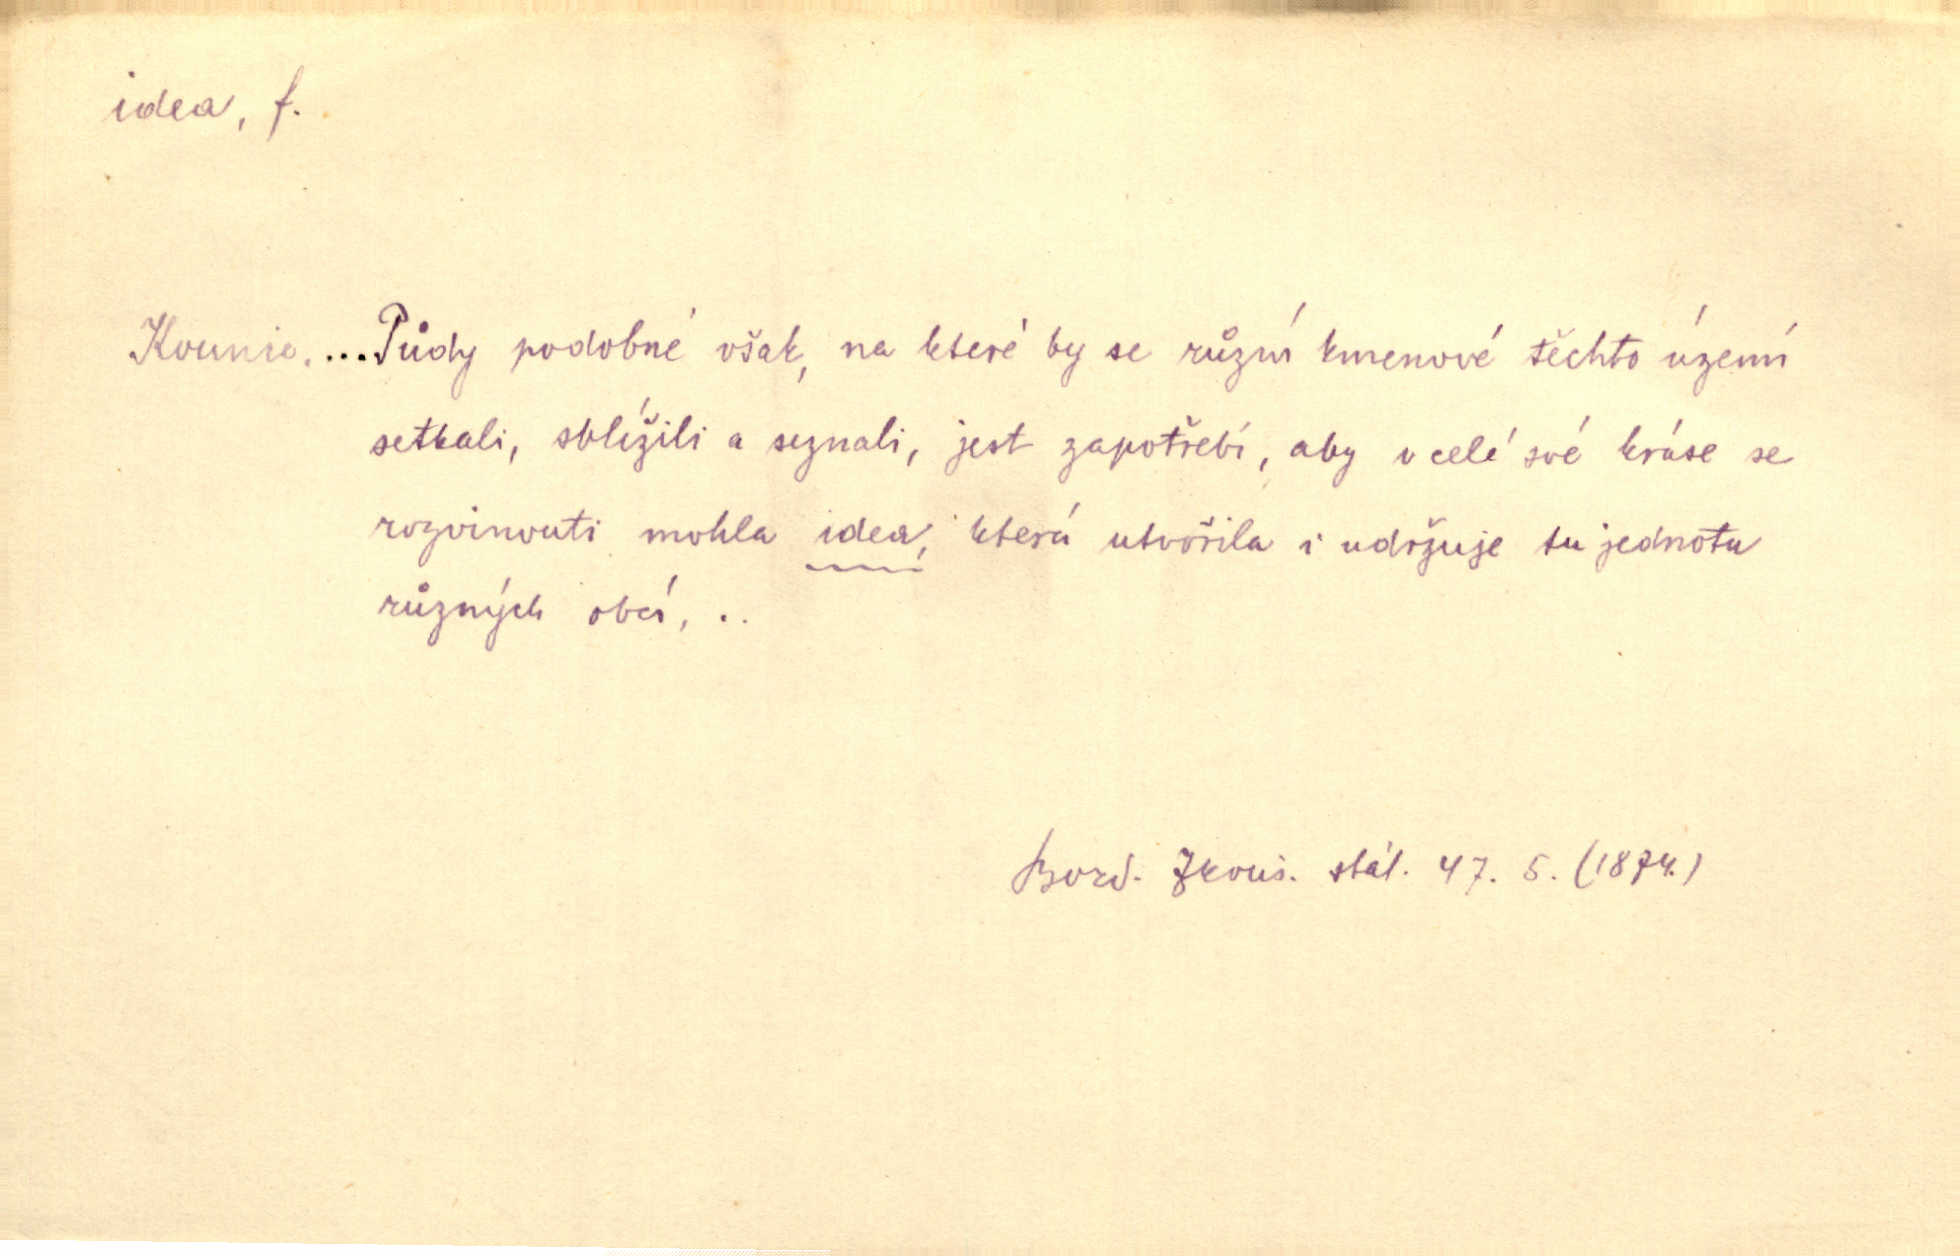 idea, f.
Kounic. ...Půdy podobné však, na které by se různí kmenové těchto území
setkali, sblížili a seznali, jest zapotřebí, aby v celé své kráse se
rozvinouti mohla idea, která utvořila i udržuje tu jednotu
různých obcí, ..
stát. 47. 5. (1874.)